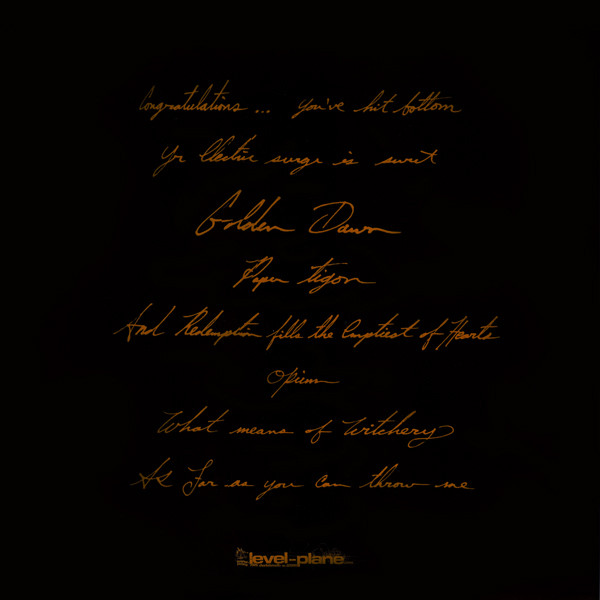 Congratulations ... you've hit bottom
Yr Electric surge is sweet
Golden Dawn
Paper tigon
And Redemption fills the Emptiest of Hearts
Opium
What means of Witchery
As Far as you can throw me
level-plane